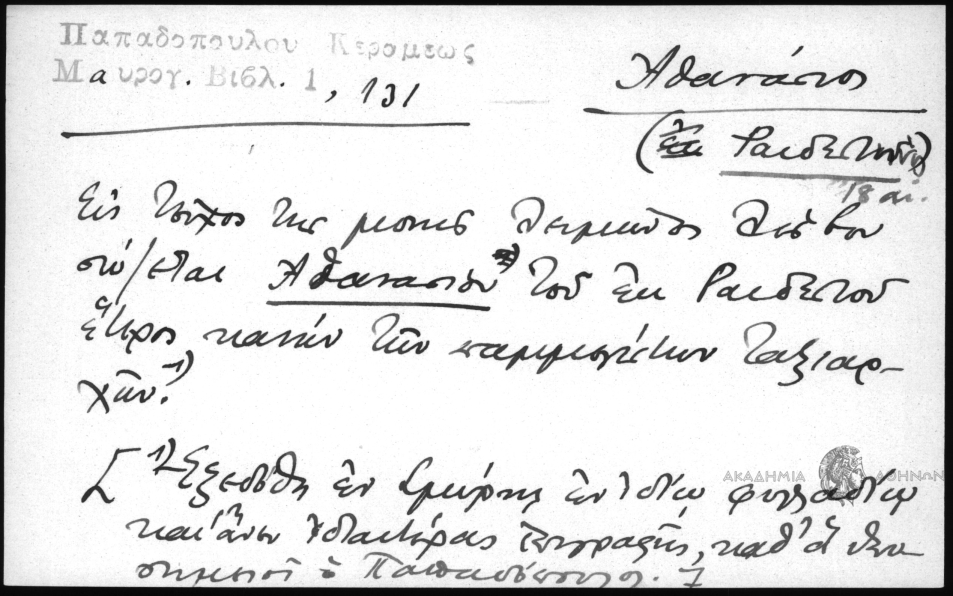 Παπαδοπουλου Κεραμεως
Μαυρογ. Βιβλ. 1, 131
Ἀθανάσιος
(ἐκ Ραιδεστοῦ)
18 αἰ.
Εἰς τεῦχος τῆς μονῆς Λειμῶνος Λέσβου
σῴζεται Ἀθανασίου τοῦ ἐκ Ραιδεστοῦ
ἕτερος κανὼν τῶν παμμεγίστων Ταξιαρ-
χῶν.¹)
[¹) Ἐξεδόθη ἐν Σμύρνῃ ἐν ἰδίῳ φυλλαδίῳ
καὶ ἄνευ ἰδιαιτέρας ἐπιγραφῆς, καθ' ἃ
σημειοῖ ὁ Παπαδόπουλος.]
ΑΚΑΔΗΜΙΑ ΑΘΗΝΩΝ